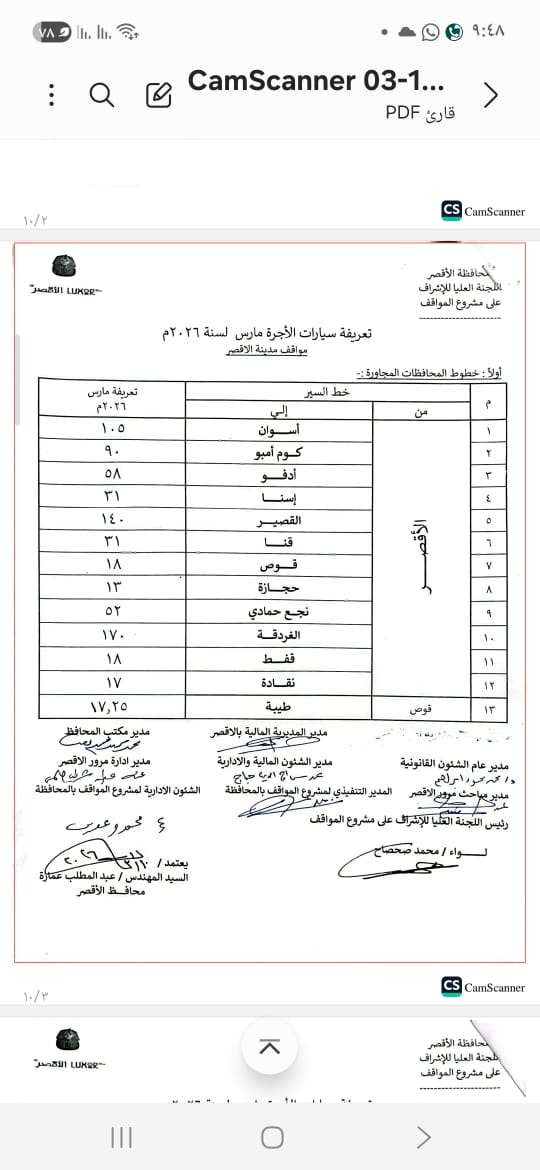 ٩:٤٨
٧٨
CamScanner 03-1...
قارئ PDF
١٠/٢
CS CamScanner
الأقصر LUXOR
محافظة الأقصر
اللجنة العليا للإشراف
على مشروع المواقف
تعريفة سيارات الأجرة مارس لسنة ٢٠٢٦م
مواقف مدينة الاقصر
أولاً : خطوط المحافظات المجاورة :-
م خط السير تعريفة مارس ٢٠٢٦م
من إلي
الأقصـــر
١ أســوان ١٠٥
٢ كــوم أمبو ٩٠
٣ أدفــو ٥٨
٤ إسنــا ٣١
٥ القصيــر ١٤٠
٦ قنــا ٣١
٧ قــوص ١٨
٨ حجــازة ١٣
٩ نجع حمادي ٥٢
١٠ الغردقــة ١٧٠
١١ قفــط ١٨
١٢ نقــادة ١٧
١٣ قوص طيبة ١٧,٢٥
مدير المديرية المالية بالاقصر
مدير مكتب المحافظ
مدير عام الشئون القانونية
مدير الشئون المالية والادارية
مدير ادارة مرور الاقصر
مدير مباحث مرور الاقصر
المدير التنفيذي لمشروع المواقف بالمحافظة
الشئون الادارية لمشروع المواقف بالمحافظة
رئيس اللجنة العليا للإشراف على مشروع المواقف
لــواء / محمد صحصاح
يعتمد /
السيد المهندس / عبد المطلب عمارة
محافــظ الأقصر
١٠/٣
CS CamScanner
الأقصر LUXOR
محافظة الأقصر
للجنة العليا للإشراف
على مشروع المواقف